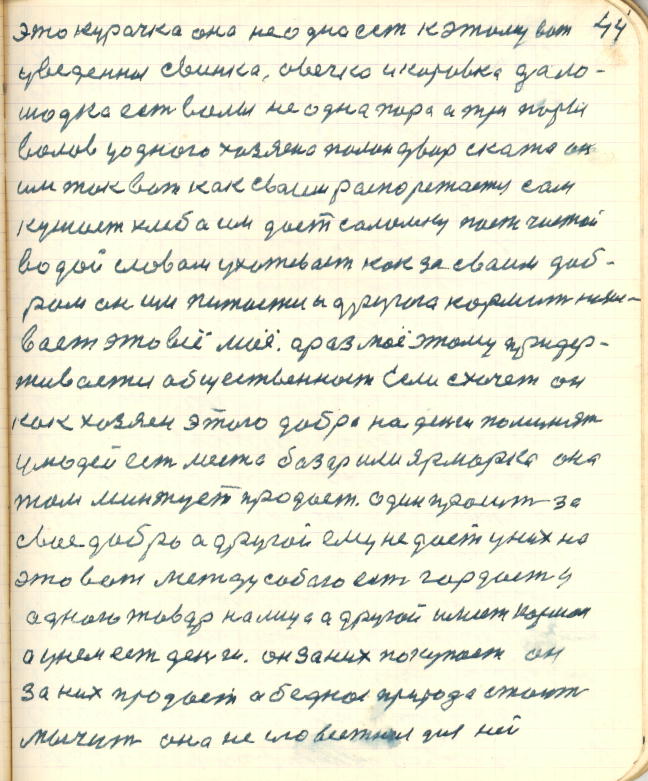 44
это курачка она не одна ест к этому вот
уведенни свинка, овечко и коровка да ло-
шодка ест волы не одна пора а три поры
волов у одного хозяена полон двор ската он
им ток вот как своим распорежаеты сам
кушает хлеб а им дает саломку поет чистой
водой словам ухажевает как за сваим доб-
ром он им питаеты а другога кормит
вает это всё моё. а раз моё этому придер-
живаеты общественност Если схочет он
как хозяен этого добра на денги поминят
у людей ест места базар или ярмарка она
там продает. один просит за
свое добро а другой ему не дает у них на
это вот между собаю ест гордаст у
аднаго товар на лицо а другой имеет
а у нем ест денги. он за них покупает он
за них продает а бедноя природа стоит
мычит она не для ней